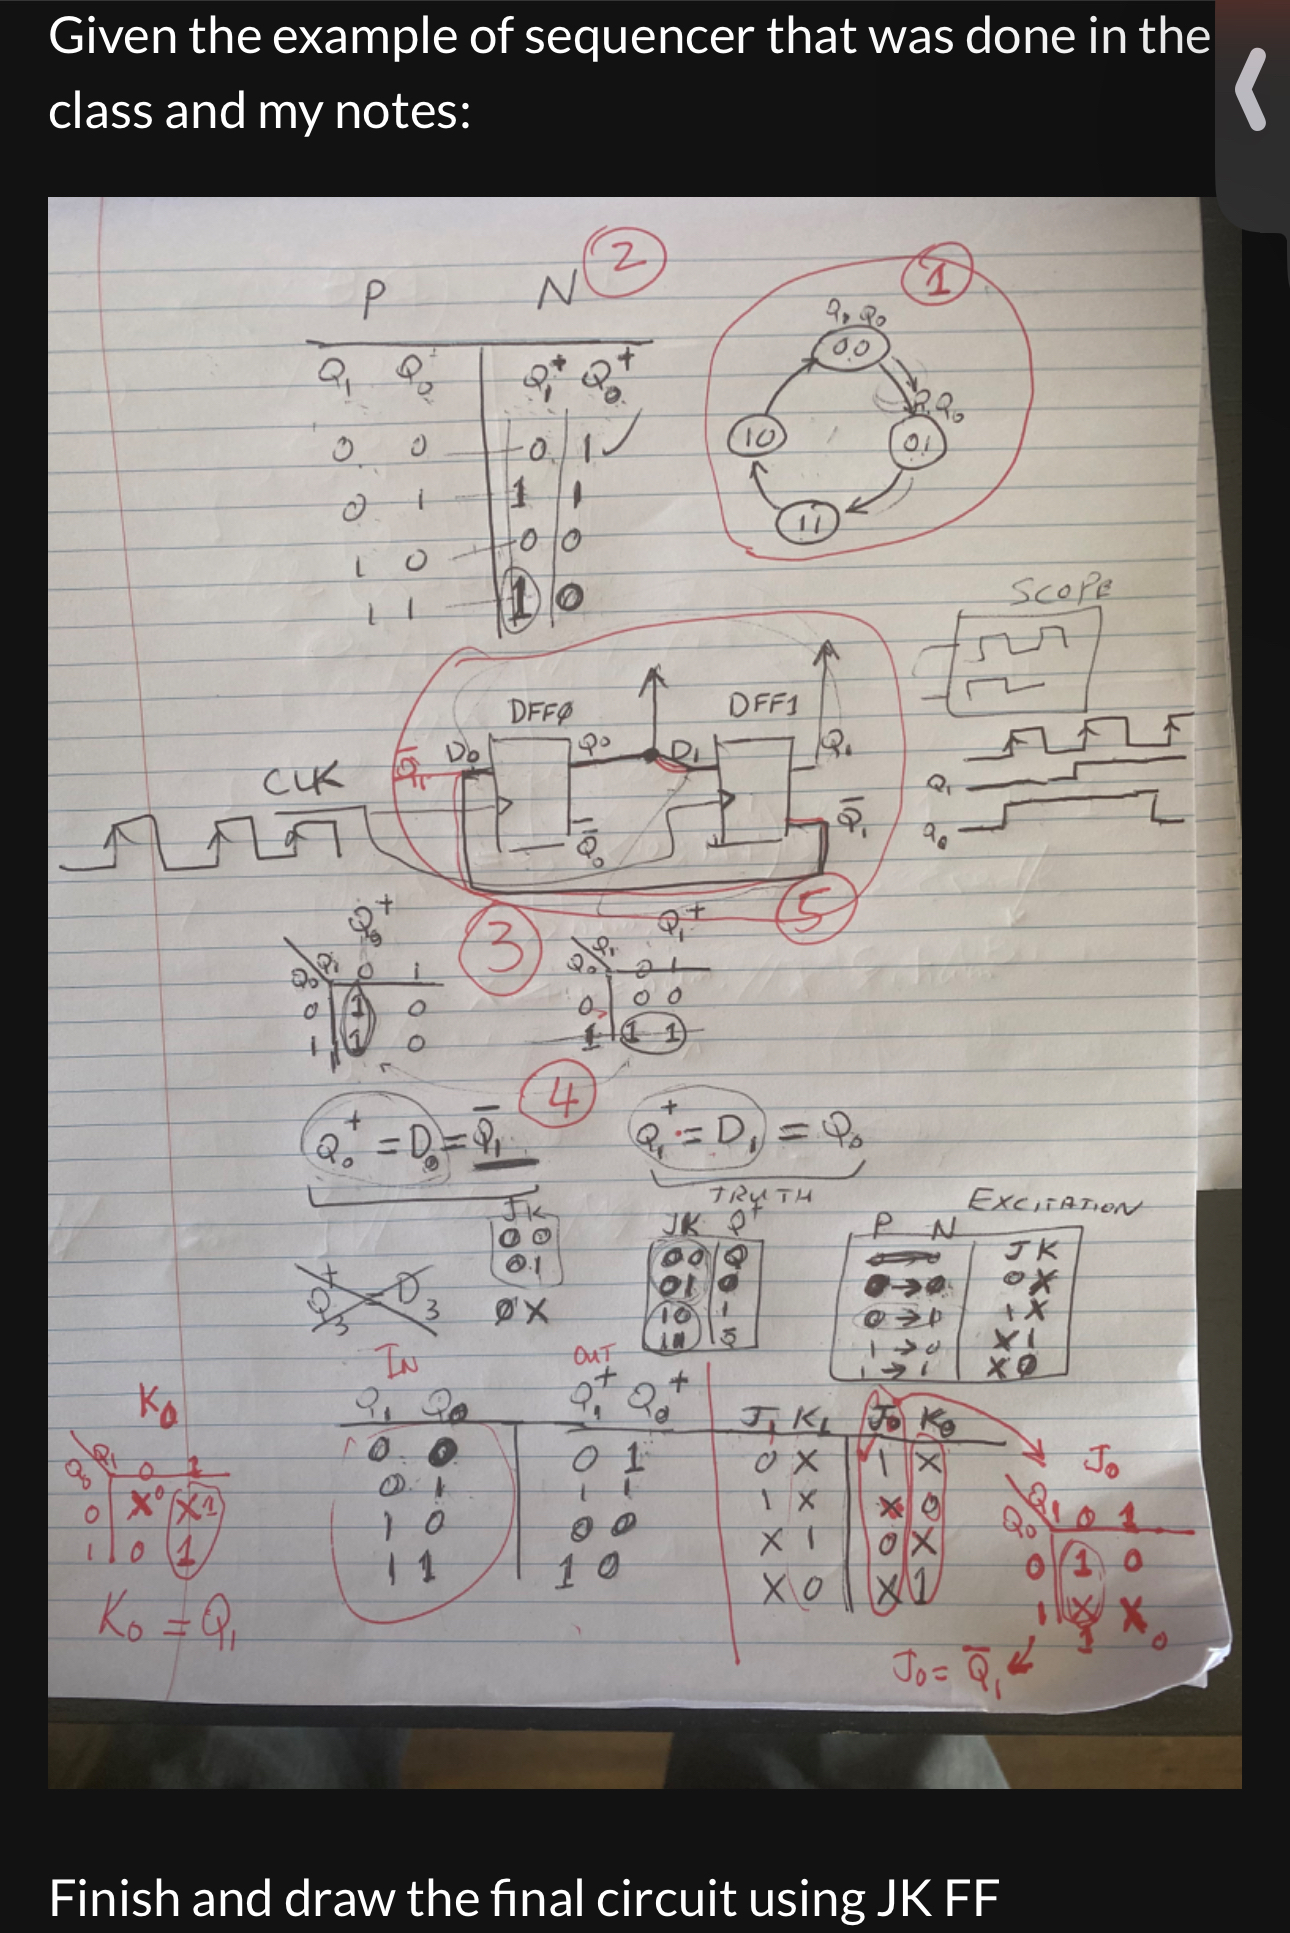 Given the example of sequencer that was done in the
class and my notes:
2
1
P N
Q1 Q0 Q1+ Q0+
0 0 0 1
0 1 1 1
1 0 0 0
1 1 1 0
Q1 Q0
00
Q0
10 01
11
SCOPE
DFF0 DFF1
Q̅1 D0 Q0 D1 Q1
CLK
Q̅0 Q̅1
Q1
Q0
3 5
Q0+ Q1+
Q0 Q1 0 1
0 1 0
1 1 0
Q0 Q1 0 1
0 0 0
1 1 1
4
Q0+ = D0 = Q̅1
Q1+ = D1 = Q0
JK
00
01
0X
TRUTH
JK Q+
00 Q
01 0
10 1
11 Q̅
EXCITATION
P N
J K
0→0 0X
0→1 1X
1→0 X1
1→1 X0
Q3+ = D3
IN OUT
Q1 Q0 Q1+ Q0+ J1 K1 J0 K0
0 0 0 1 0 X 1 X
0 1 1 1 1 X X 0
1 0 0 0 X 1 0 X
1 1 1 0 X 0 X 1
K0
Q0 Q1 0 1
0 X0 X1
1 0 1
K0 = Q1
J0
Q0 Q1 0 1
0 1 0
1 X X0
1
J0 = Q̅1
Finish and draw the final circuit using JK FF